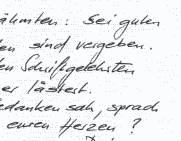 ähmten: Sei guten
en sind vergeben.
en Schriftgelehrten
er lästert.
edanken sah, sprach
euren Herzen?